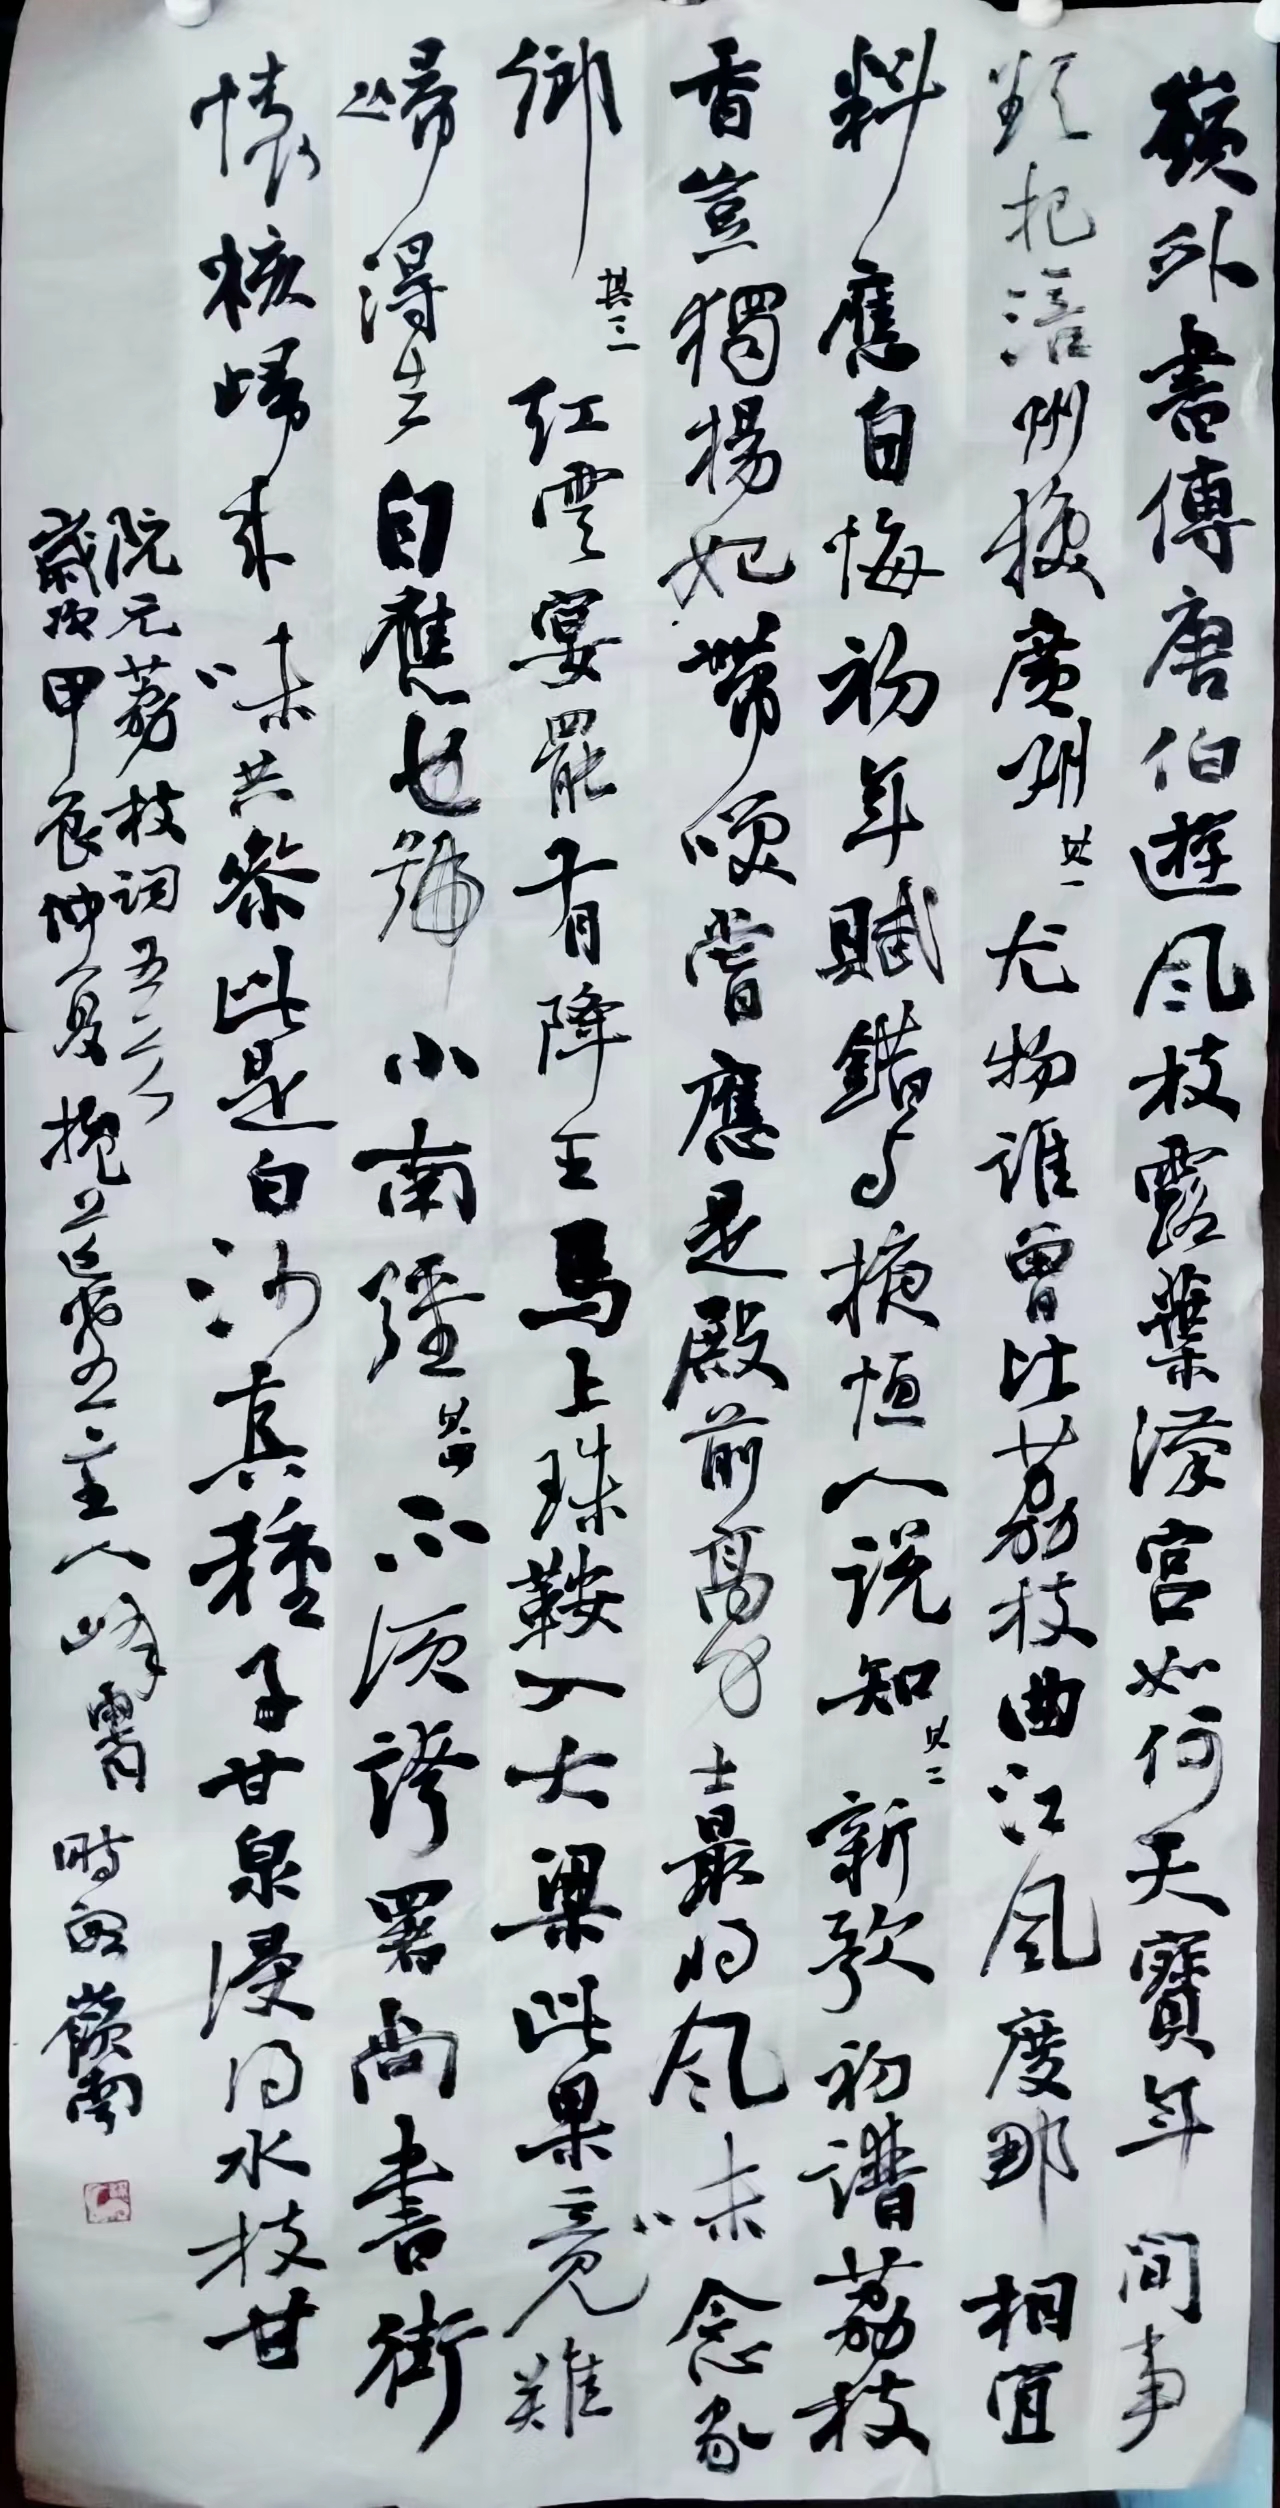 嶺外書傳唐伯遊風枝露葉漢宮如何天寶年間事
錯把涪州換廣州其一尤物誰曾比荔枝曲江風度那相宜
料應自悔初年賦錯与掖恒人説知其二新歌初譜荔枝
香豈獨楊妃帶咲嘗應是殿前高力士最將風味念家
鄉其三紅雲宴罷有降王馬上珠鞍入大梁此果竟難
啼得生自應也號小南強其四不須誇署尚書銜
懷核歸來味共參此是白沙真種子甘泉浸得水枝甘
阮元荔枝詞五之
歲次甲辰仲夏挽主人峰冑時客嶺南